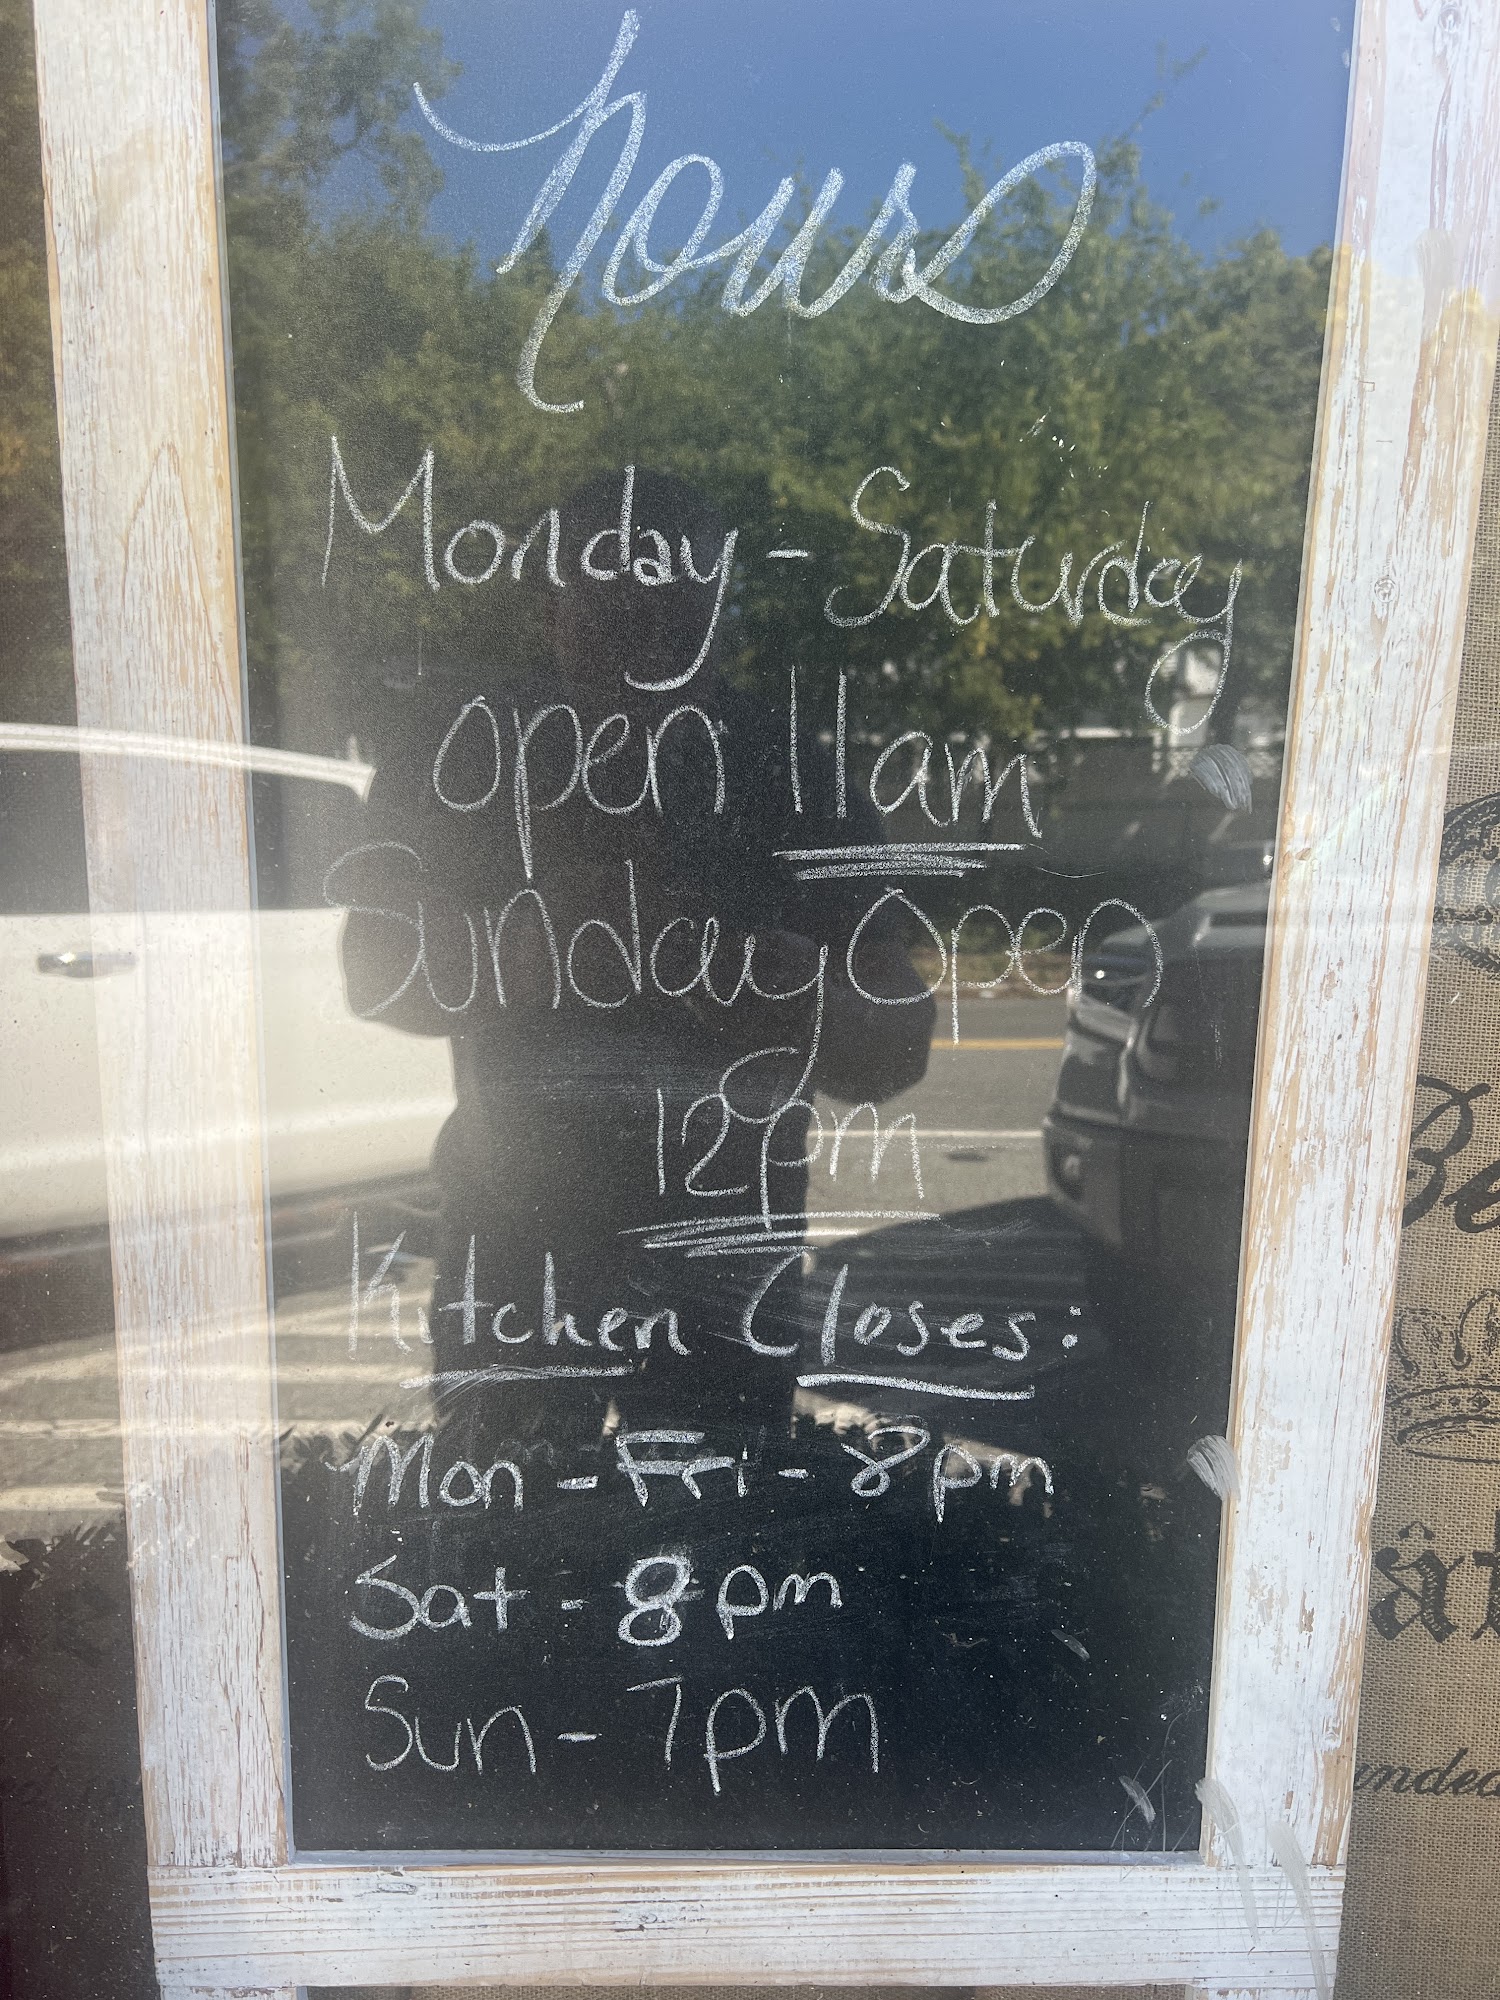 hours
Monday - Saturday
open 11am
Sunday Open
12pm
Kitchen Closes:
Mon - Fri - 8pm
Sat - 8pm
Sun - 7pm